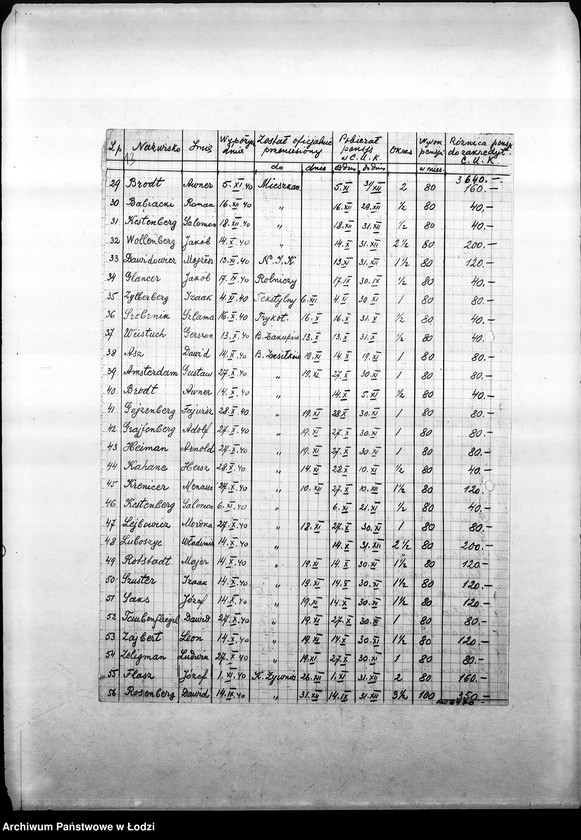 L.p. Nazwisko Imię Wypożycz. dnia Został oficjalnie przeniesiony Pobierał pensję w C.U.K. Okres Wyson. pensji Różnica pensji do zakredyt. C.U.K.
13 do dnia od dnia do dnia w mies.
3640.-
29 Brodt Awner 5.XI.40 Mieszkan. 5.XI 31/XII 2 80 160.-
30 Babiacki Roman 16.XII.40 " 16.XII ½ 80 40.-
31 Kestenberg Salomon 18.XII.40 " 18.XII 31.XII ½ 80 40.-
32 Wollenberg Jakob 14.X.40 " 14.X 31.XII 2½ 80 200.-
33 Dawidowicz 13.XI.40 N.I.K. 13.XI 31.XII 1½ 80 120.-
34 Glancer Jakób 17.IX.40 Rolniczy 17.IX 30.IX ½ 80 40.-
35 Zylberberg Izaak 4.XI.40 Tekstylny 6.XI. 4.XI 30.XI 1 80 80.-
36 Srebrnik Szlama 16.X.40 Trykot. 16.X 16.X 31.X ½ 80 40.-
37 Gerszon 13.X.40 B. Zakupów 13.X 13.X 31.X ½ 80 40.-
38 Asz Dawid 14.X.40 B. Zasiłków 19.XI 14.X 19.XI 1 80 80.-
39 Amsterdam Gustaw 27.X.40 " 19.XI 27.X 30.XI 1 80 80.-
40 Brodt Awner 14.X.40 " 14.X 5.XI ½ 80 40.-
41 28.X.40 " 19.XI 28.X 30.XI 1 80 80.-
42 Grajfenberg Adolf 27.X.40 " 19.XI 27.X 30.XI 1 80 80.-
43 Heiman Arnold 27.X.40 " 19.XI 27.X 30.XI 1 80 80.-
44 Kahane Hersz 28.X.40 " 14.XI 28.X 10.XI ½ 80 40.-
45 Krenicer Menasze 27.X.40 " 10.XII 27.X 10.XII 1½ 80 120.-
46 Kestenberg Salomon 6.XI.40 " 6.XI 21.XI ½ 80 40.-
47 Lejbowicz 27.X.40 " 18.XI 27.X 30.XI 1 80 80.-
48 Luboszyc Władimir 14.X.40 " 14.X 31.XII 2½ 80 200.-
49 Rotstadt Majer 14.X.40 " 19.XI 14.X 30.XI 1½ 80 120.-
50 Szuster Izaak 14.X.40 " 19.XI 14.X 30.XI 1½ 80 120.-
51 Saks Józef 14.X.40 " 19.XI 14.X 30.XI 1½ 80 120.-
52 Dawid 27.X.40 " 19.XI 27.X 30.XI 1 80 80.-
53 Zajbert Leon 14.X.40 " 19.XI 14.X 30.XI 1½ 80 120.-
54 Zeligman Ludwik 27.X.40 " 19.XI 27.X 30.XI 1 80 80.-
55 Flasz Józef 1.XI.40 K. Żywnoś. 26.XII 1.XI 31.XII 2 80 160.-
56 Rosenberg Dawid 14.IX.40 " 31.XII 14.IX 31.XII 3½ 100 350.-
Archiwum Państwowe w Łodzi